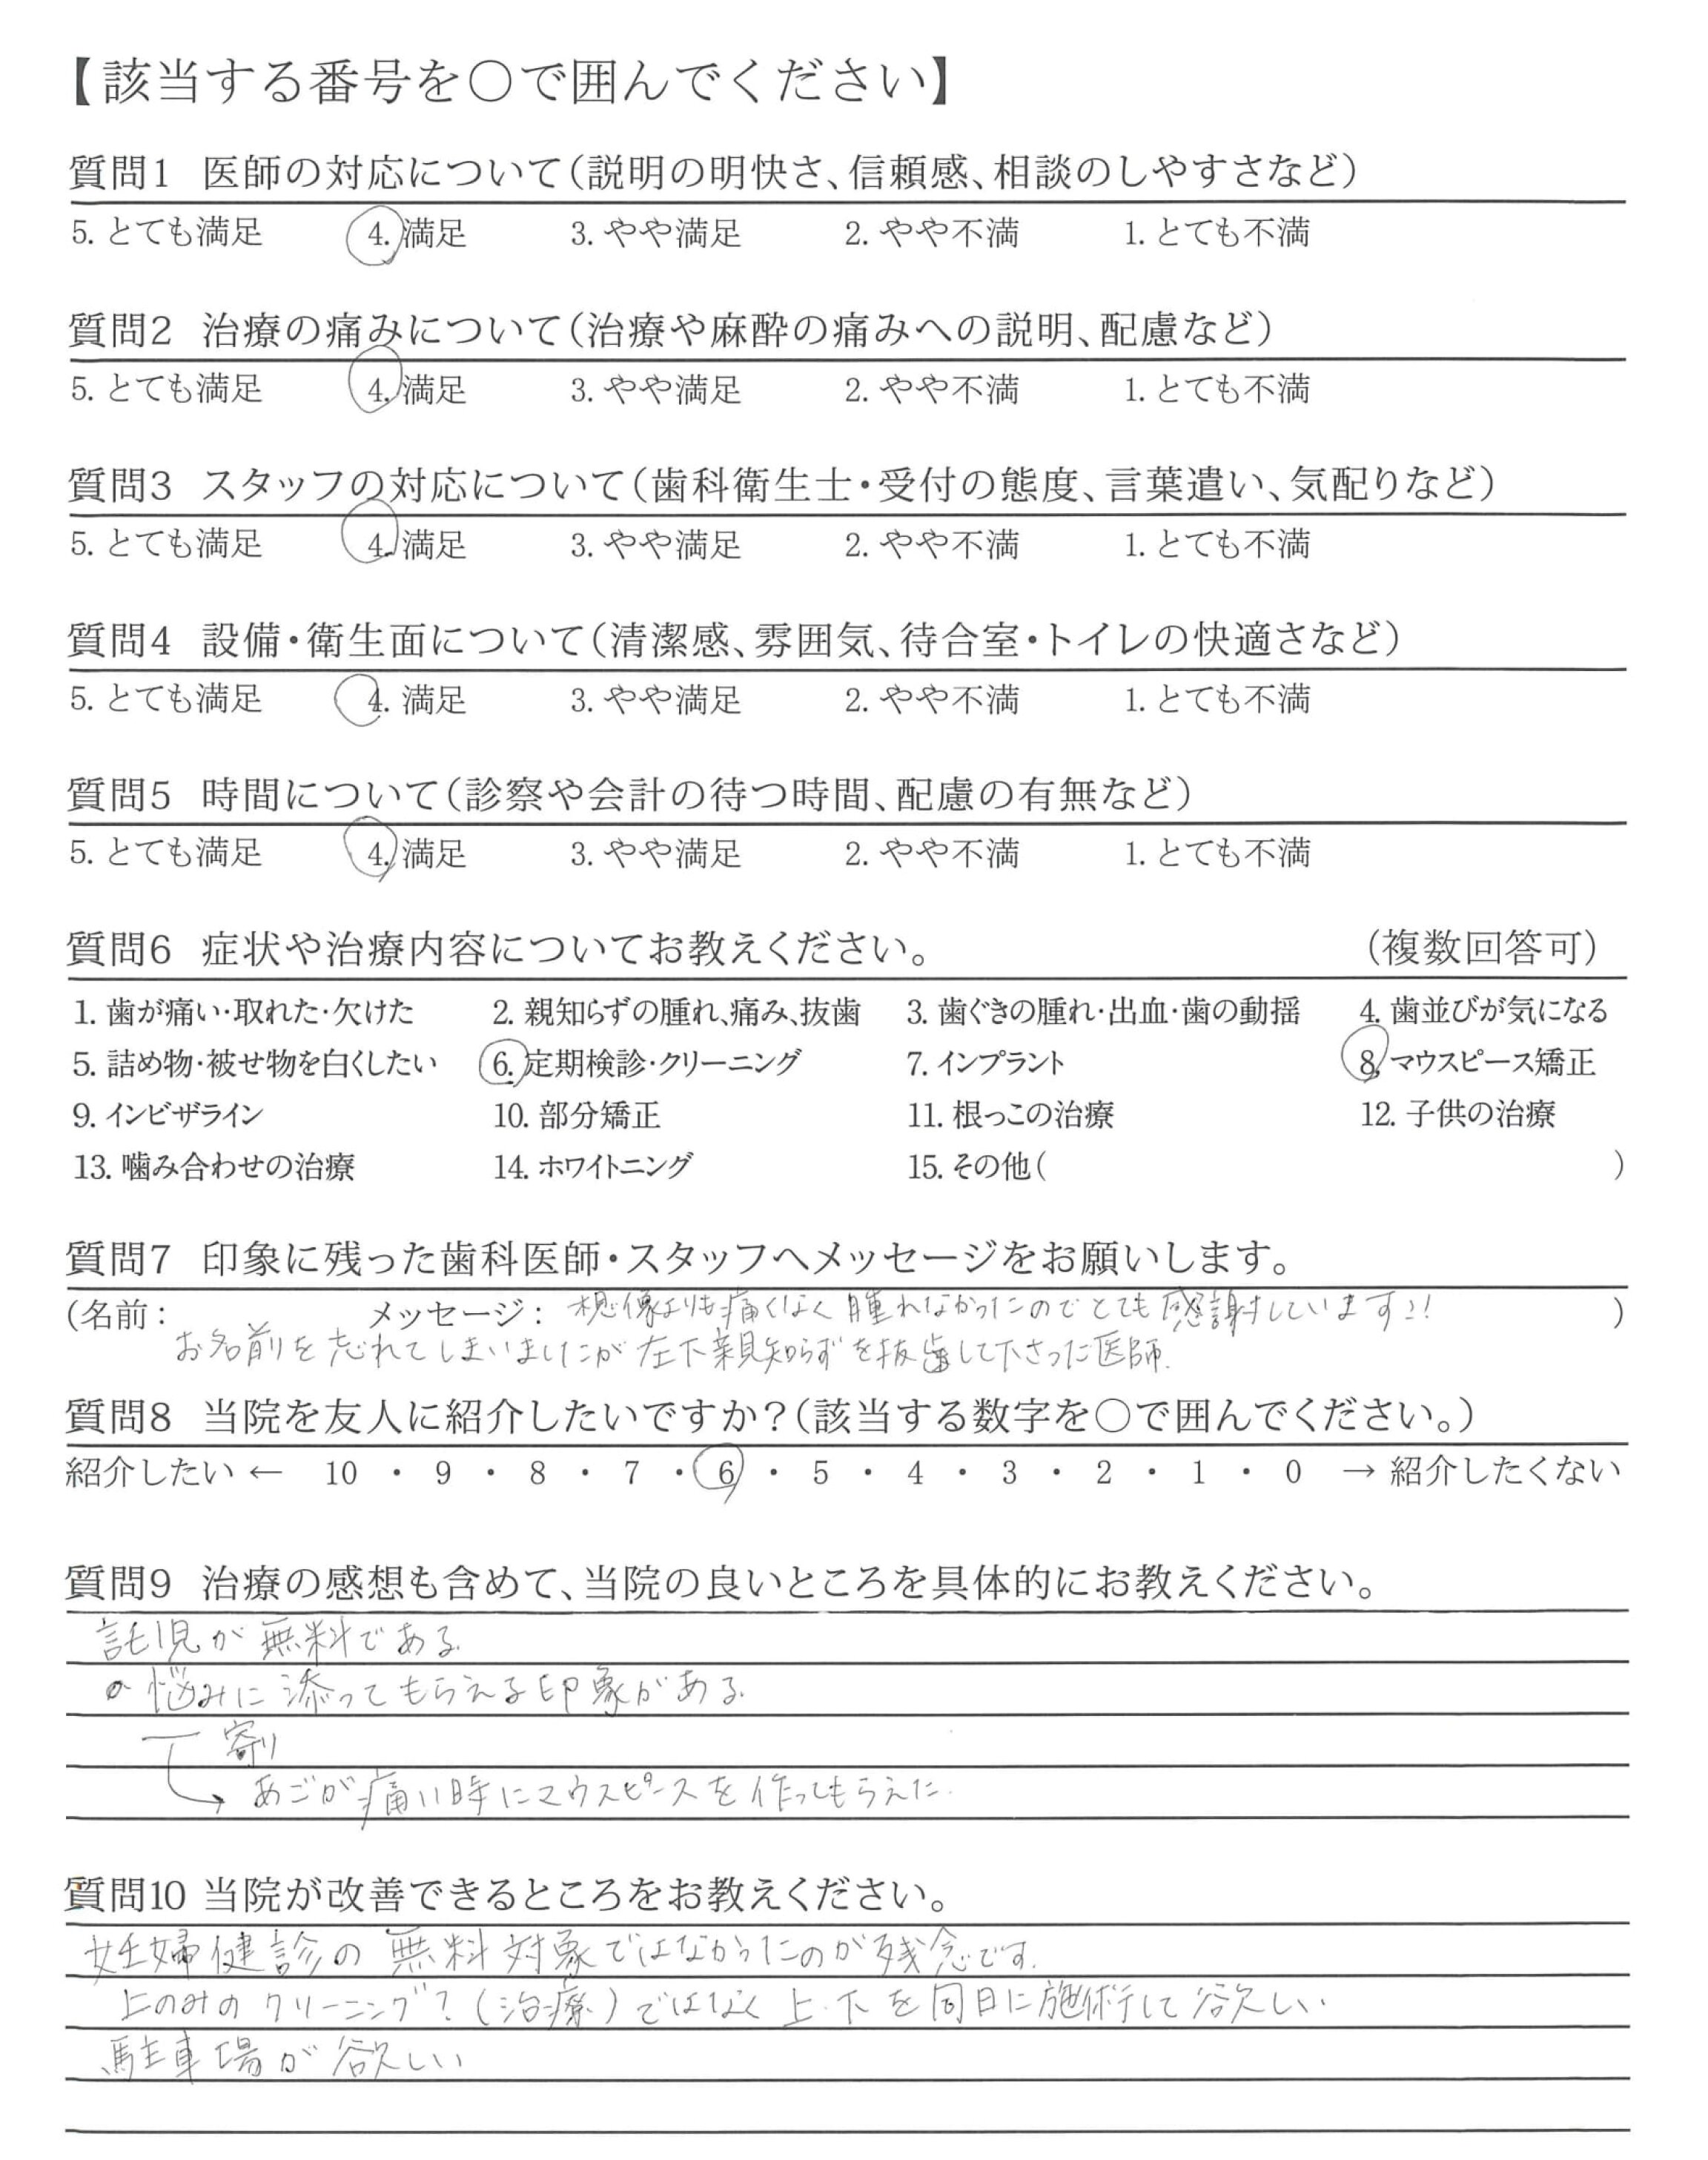 【該当する番号を○で囲んでください】
質問1 医師の対応について(説明の明快さ、信頼感、相談のしやすさなど)
5. とても満足 4. 満足 3. やや満足 2. やや不満 1. とても不満
質問2 治療の痛みについて(治療や麻酔の痛みへの説明、配慮など)
5. とても満足 4. 満足 3. やや満足 2. やや不満 1. とても不満
質問3 スタッフの対応について(歯科衛生士・受付の態度、言葉遣い、気配りなど)
5. とても満足 4. 満足 3. やや満足 2. やや不満 1. とても不満
質問4 設備・衛生面について(清潔感、雰囲気、待合室・トイレの快適さなど)
5. とても満足 4. 満足 3. やや満足 2. やや不満 1. とても不満
質問5 時間について(診察や会計の待つ時間、配慮の有無など)
5. とても満足 4. 満足 3. やや満足 2. やや不満 1. とても不満
質問6 症状や治療内容についてお教えください。 (複数回答可)
1. 歯が痛い・取れた・欠けた 2. 親知らずの腫れ、痛み、抜歯 3. 歯ぐきの腫れ・出血・歯の動揺 4. 歯並びが気になる
5. 詰め物・被せ物を白くしたい 6. 定期検診・クリーニング 7. インプラント 8. マウスピース矯正
9. インビザライン 10. 部分矯正 11. 根っこの治療 12. 子供の治療
13. 噛み合わせの治療 14. ホワイトニング 15. その他( )
質問7 印象に残った歯科医師・スタッフへメッセージをお願いします。
(名前: メッセージ: 想像よりも痛くなく腫れなかったのでとても感謝しています!! )
お名前を忘れてしまいましたが左下親知らずを抜歯して下さった医師.
質問8 当院を友人に紹介したいですか?(該当する数字を○で囲んでください。)
紹介したい ← 10 ・ 9 ・ 8 ・ 7 ・ 6 ・ 5 ・ 4 ・ 3 ・ 2 ・ 1 ・ 0 → 紹介したくない
質問9 治療の感想も含めて、当院の良いところを具体的にお教えください。
託児が無料である.
悩みに添ってもらえる印象がある.
寄り
→ あごが痛い時にマウスピースを作ってもらえた.
質問10 当院が改善できるところをお教えください。
妊婦健診の無料対象ではなかったのが残念です.
上のみのクリーニング?(治療)ではなく上・下を同日に施術して欲しい.
駐車場が欲しい